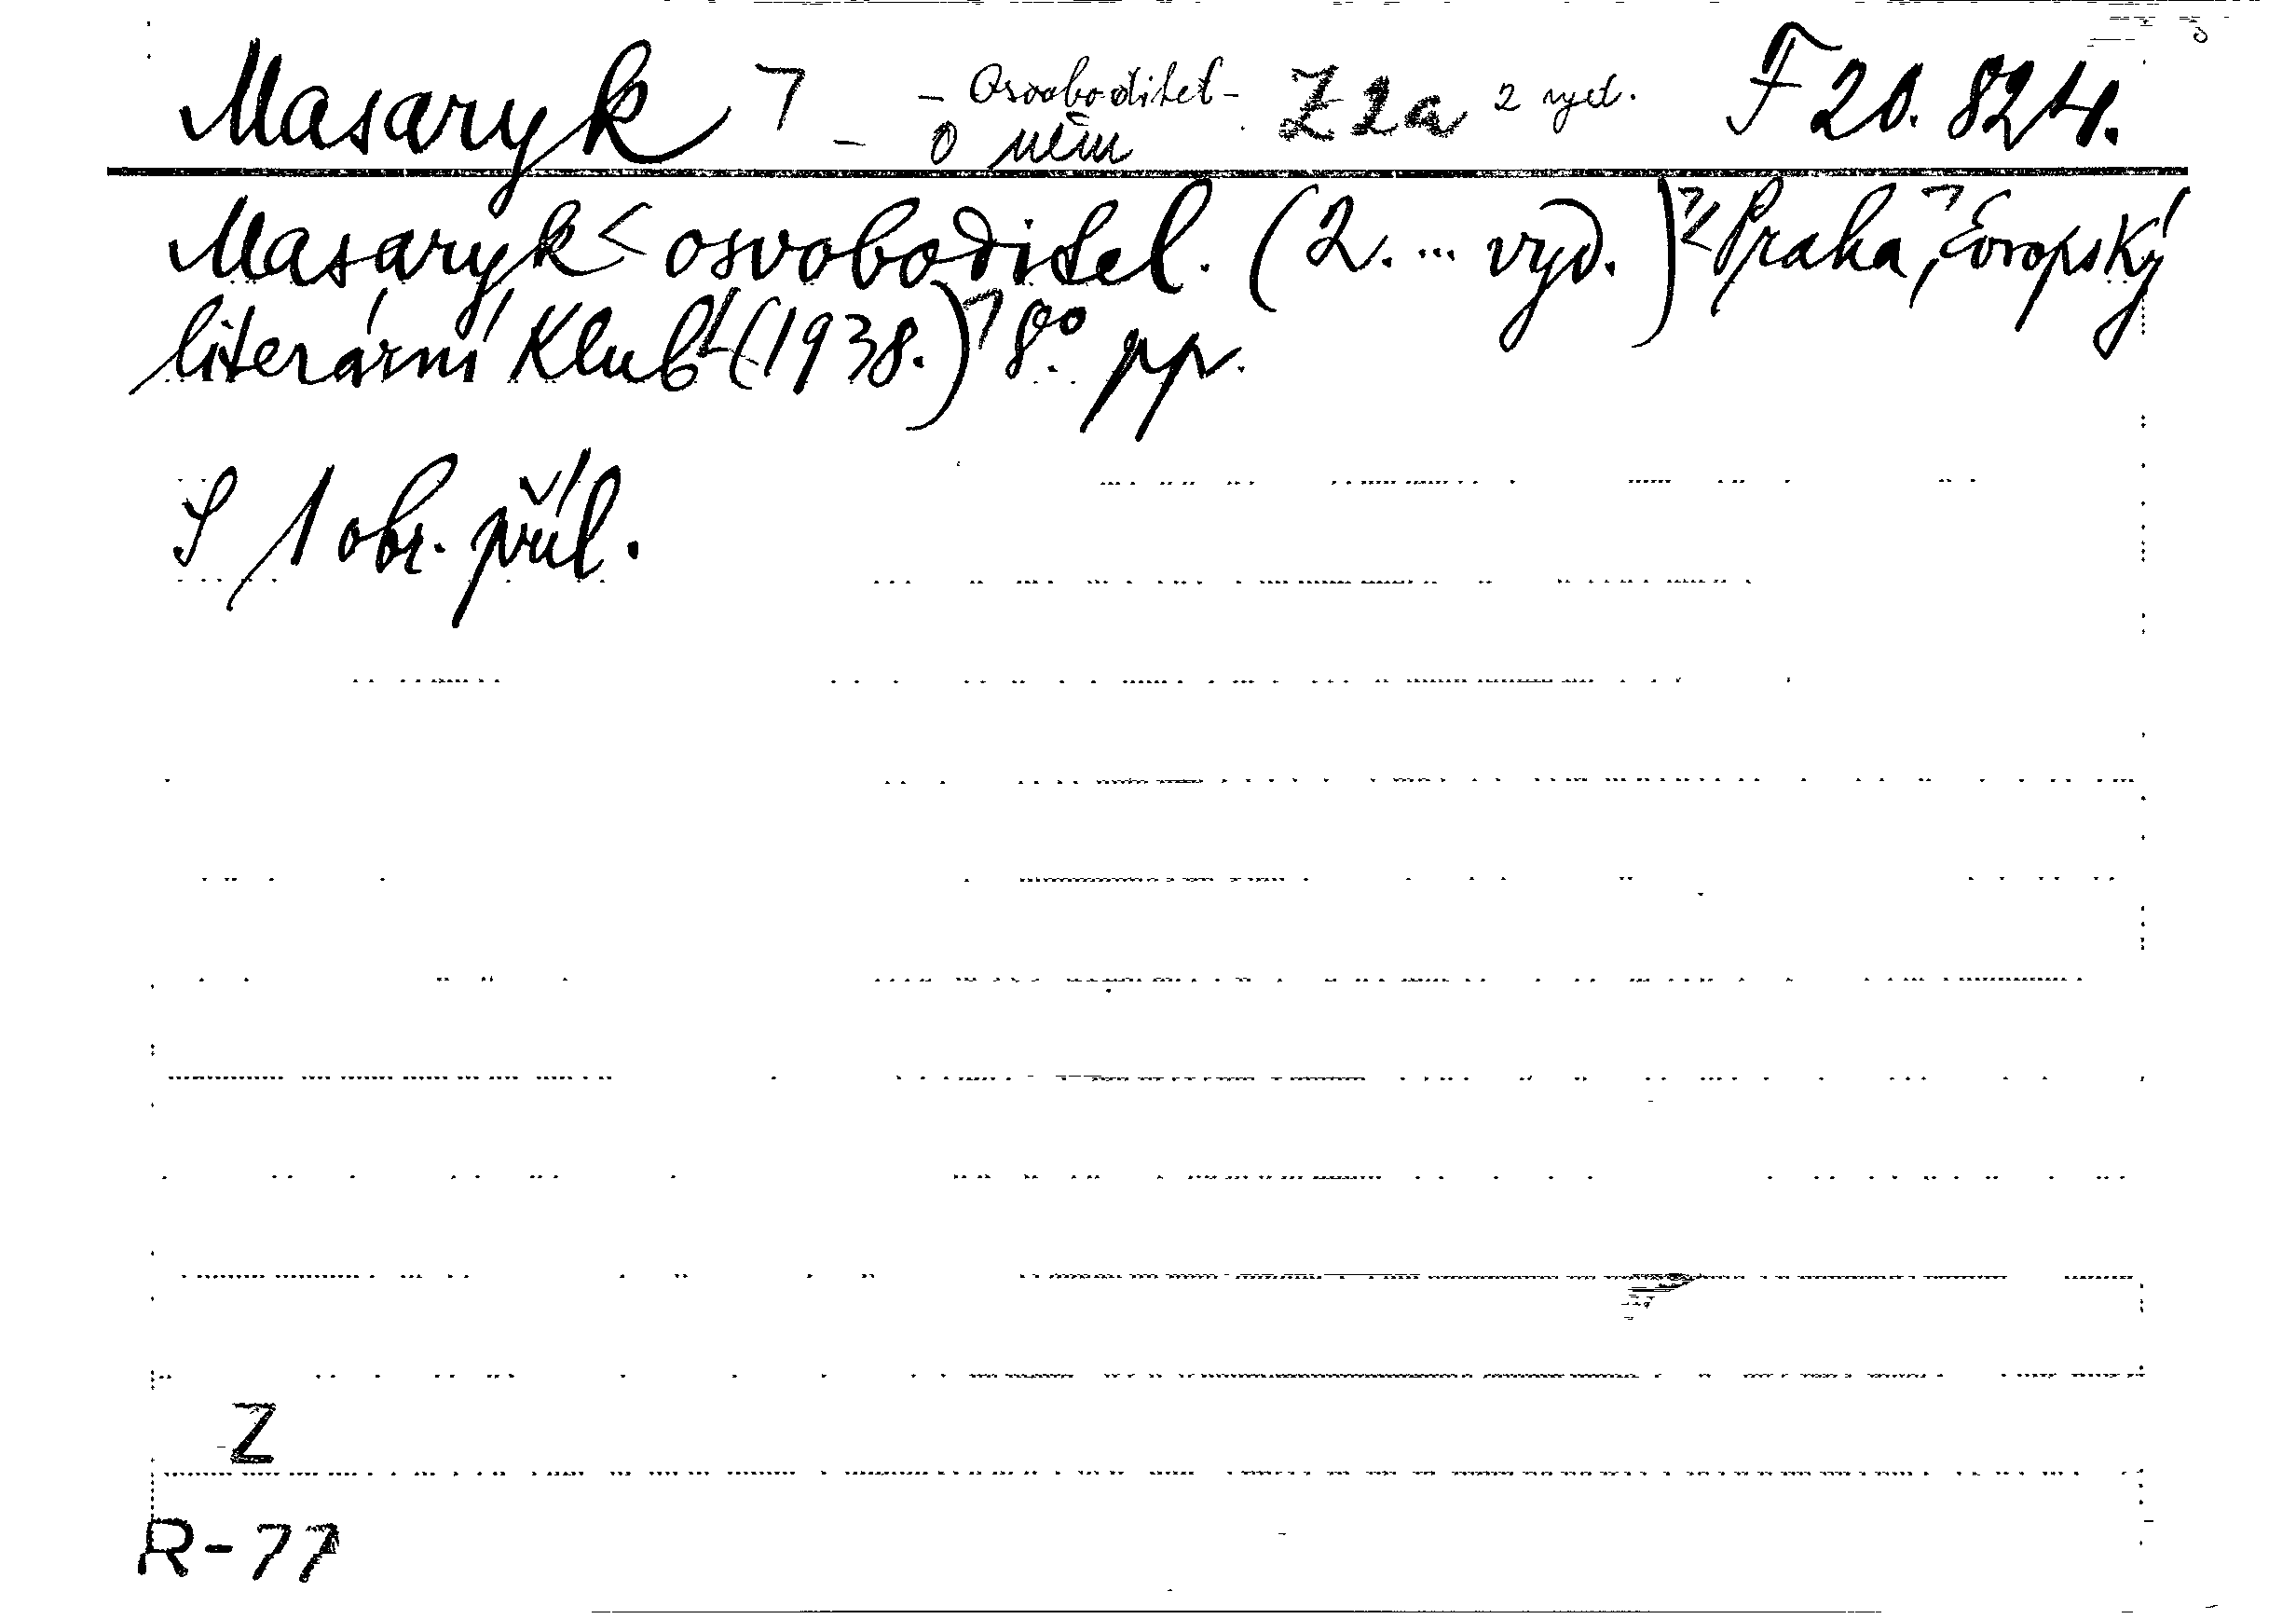 Masaryk – Osvoboditel – Z 2a 2 vyd. F 20.824.
– o něm
Masaryk osvoboditel. (2. ... vyd.) Praha, Evropský
literární Klub (1938.) 8° pp.
S 1 obr. příl.
Z
R-77